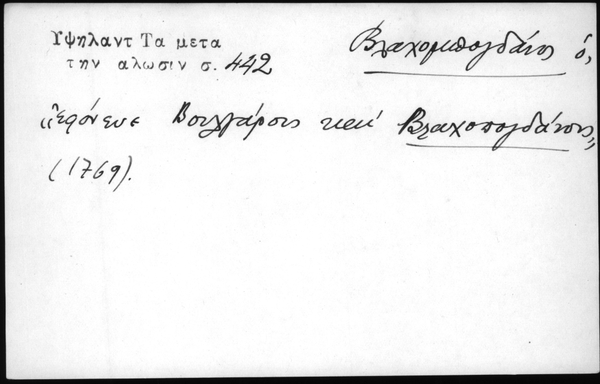 Υψηλαντ Τα μετα
την αλωσιν σ. 442
Βλαχομπογδάνος ὁ,
«ἐφόνευε Βουλγάρους καί Βλαχοπογδάνους»
(1769).